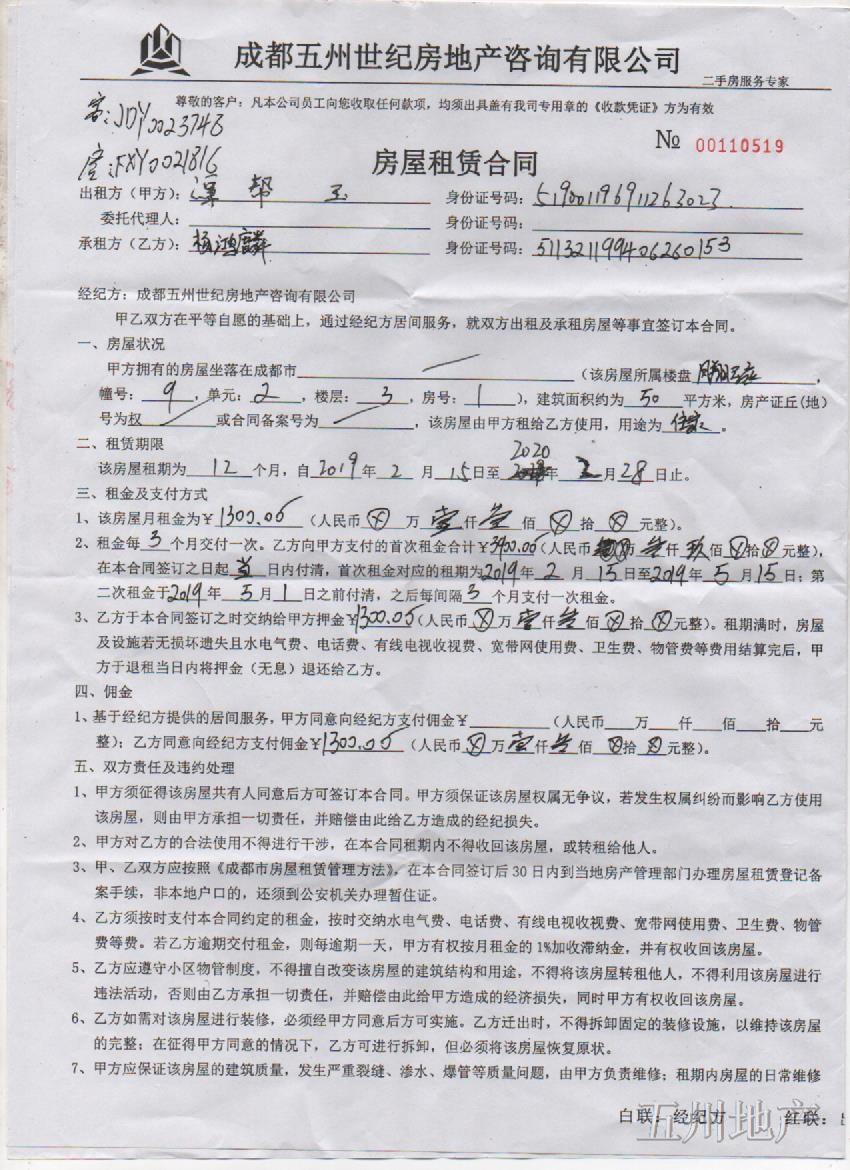 成都五州世纪房地产咨询有限公司
二手房服务专家
尊敬的客户：凡本公司员工向您收取任何款项，均须出具盖有我司专用章的《收款凭证》方为有效
客：JDY0023748
房：FXY0021816
№ 00110519
房屋租赁合同
出租方（甲方）：邦玉 身份证号码：519001196911263023
委托代理人： 身份证号码：
承租方（乙方）：杨鸿麟 身份证号码：511321199406260153
经纪方：成都五州世纪房地产咨询有限公司
甲乙双方在平等自愿的基础上，通过经纪方居间服务，就双方出租及承租房屋等事宜签订本合同。
一、房屋状况
甲方拥有的房屋坐落在成都市 （该房屋所属楼盘
幢号：9，单元：2，楼层：3，房号：1），建筑面积约为50平方米，房产证丘(地)
号为权 或合同备案号为 ，该房屋由甲方租给乙方使用，用途为住家。
二、租赁期限
该房屋租期为12个月，自2019年2月15日至2020年2月28日止。
三、租金及支付方式
1、该房屋月租金为￥1300.00（人民币⊗万壹仟叁佰⊗拾⊗元整）。
2、租金每3个月交付一次。乙方向甲方支付的首次租金合计￥3900.00（人民币⊗万叁仟玖佰⊗拾⊗元整），
在本合同签订之日起当日内付清，首次租金对应的租期为2019年2月15日至2019年5月15日；第
二次租金于2019年5月1日之前付清，之后每间隔3个月支付一次租金。
3、乙方于本合同签订之时交纳给甲方押金￥1300.00（人民币⊗万壹仟叁佰⊗拾⊗元整）。租期满时，房屋
及设施若无损坏遗失且水电气费、电话费、有线电视收视费、宽带网使用费、卫生费、物管费等费用结算完后，甲
方于退租当日内将押金（无息）退还给乙方。
四、佣金
1、基于经纪方提供的居间服务，甲方同意向经纪方支付佣金￥ （人民币 万 仟 佰 拾 元
整）；乙方同意向经纪方支付佣金￥1300.00（人民币⊗万壹仟叁佰⊗拾⊗元整）。
五、双方责任及违约处理
1、甲方须征得该房屋共有人同意后方可签订本合同。甲方须保证该房屋权属无争议，若发生权属纠纷而影响乙方使用
该房屋，则由甲方承担一切责任，并赔偿由此给乙方造成的经纪损失。
2、甲方对乙方的合法使用不得进行干涉，在本合同租期内不得收回该房屋，或转租给他人。
3、甲、乙双方应按照《成都市房屋租赁管理方法》，在本合同签订后30日内到当地房产管理部门办理房屋租赁登记备
案手续，非本地户口的，还须到公安机关办理暂住证。
4、乙方须按时支付本合同约定的租金，按时交纳水电气费、电话费、有线电视收视费、宽带网使用费、卫生费、物管
费等费。若乙方逾期交付租金，则每逾期一天，甲方有权按月租金的1%加收滞纳金，并有权收回该房屋。
5、乙方应遵守小区物管制度，不得擅自改变该房屋的建筑结构和用途，不得将该房屋转租他人，不得利用该房屋进行
违法活动，否则由乙方承担一切责任，并赔偿由此给甲方造成的经济损失，同时甲方有权收回该房屋。
6、乙方如需对该房屋进行装修，必须经甲方同意后方可实施。乙方迁出时，不得拆卸固定的装修设施，以维持该房屋
的完整；在征得甲方同意的情况下，乙方可进行拆卸，但必须将该房屋恢复原状。
7、甲方应保证该房屋的建筑质量，发生严重裂缝、渗水、爆管等质量问题，由甲方负责维修；租期内房屋的日常维修
白联：经纪方 红联：
五州地产